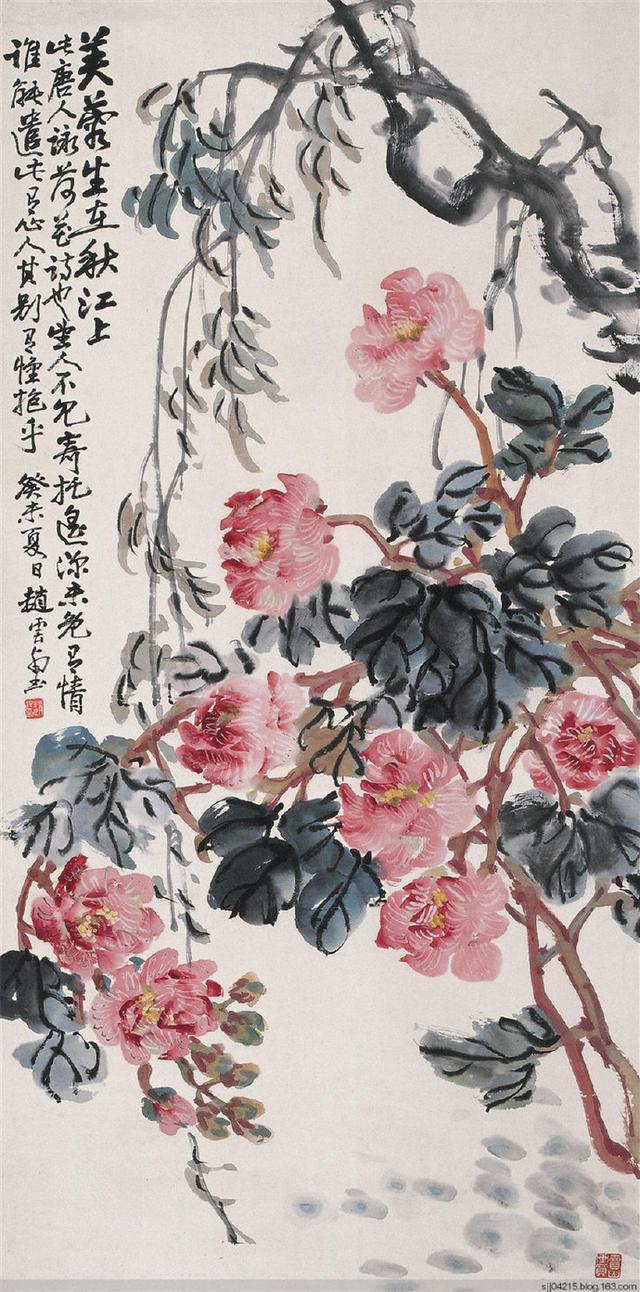 芙蓉生在秋江上
此唐人詠荷花詩也人不見寄托遙深未免有情
誰能遣此有心人其別有懷抱乎 癸未夏日趙雲壑
sjj04215.blog.163.com